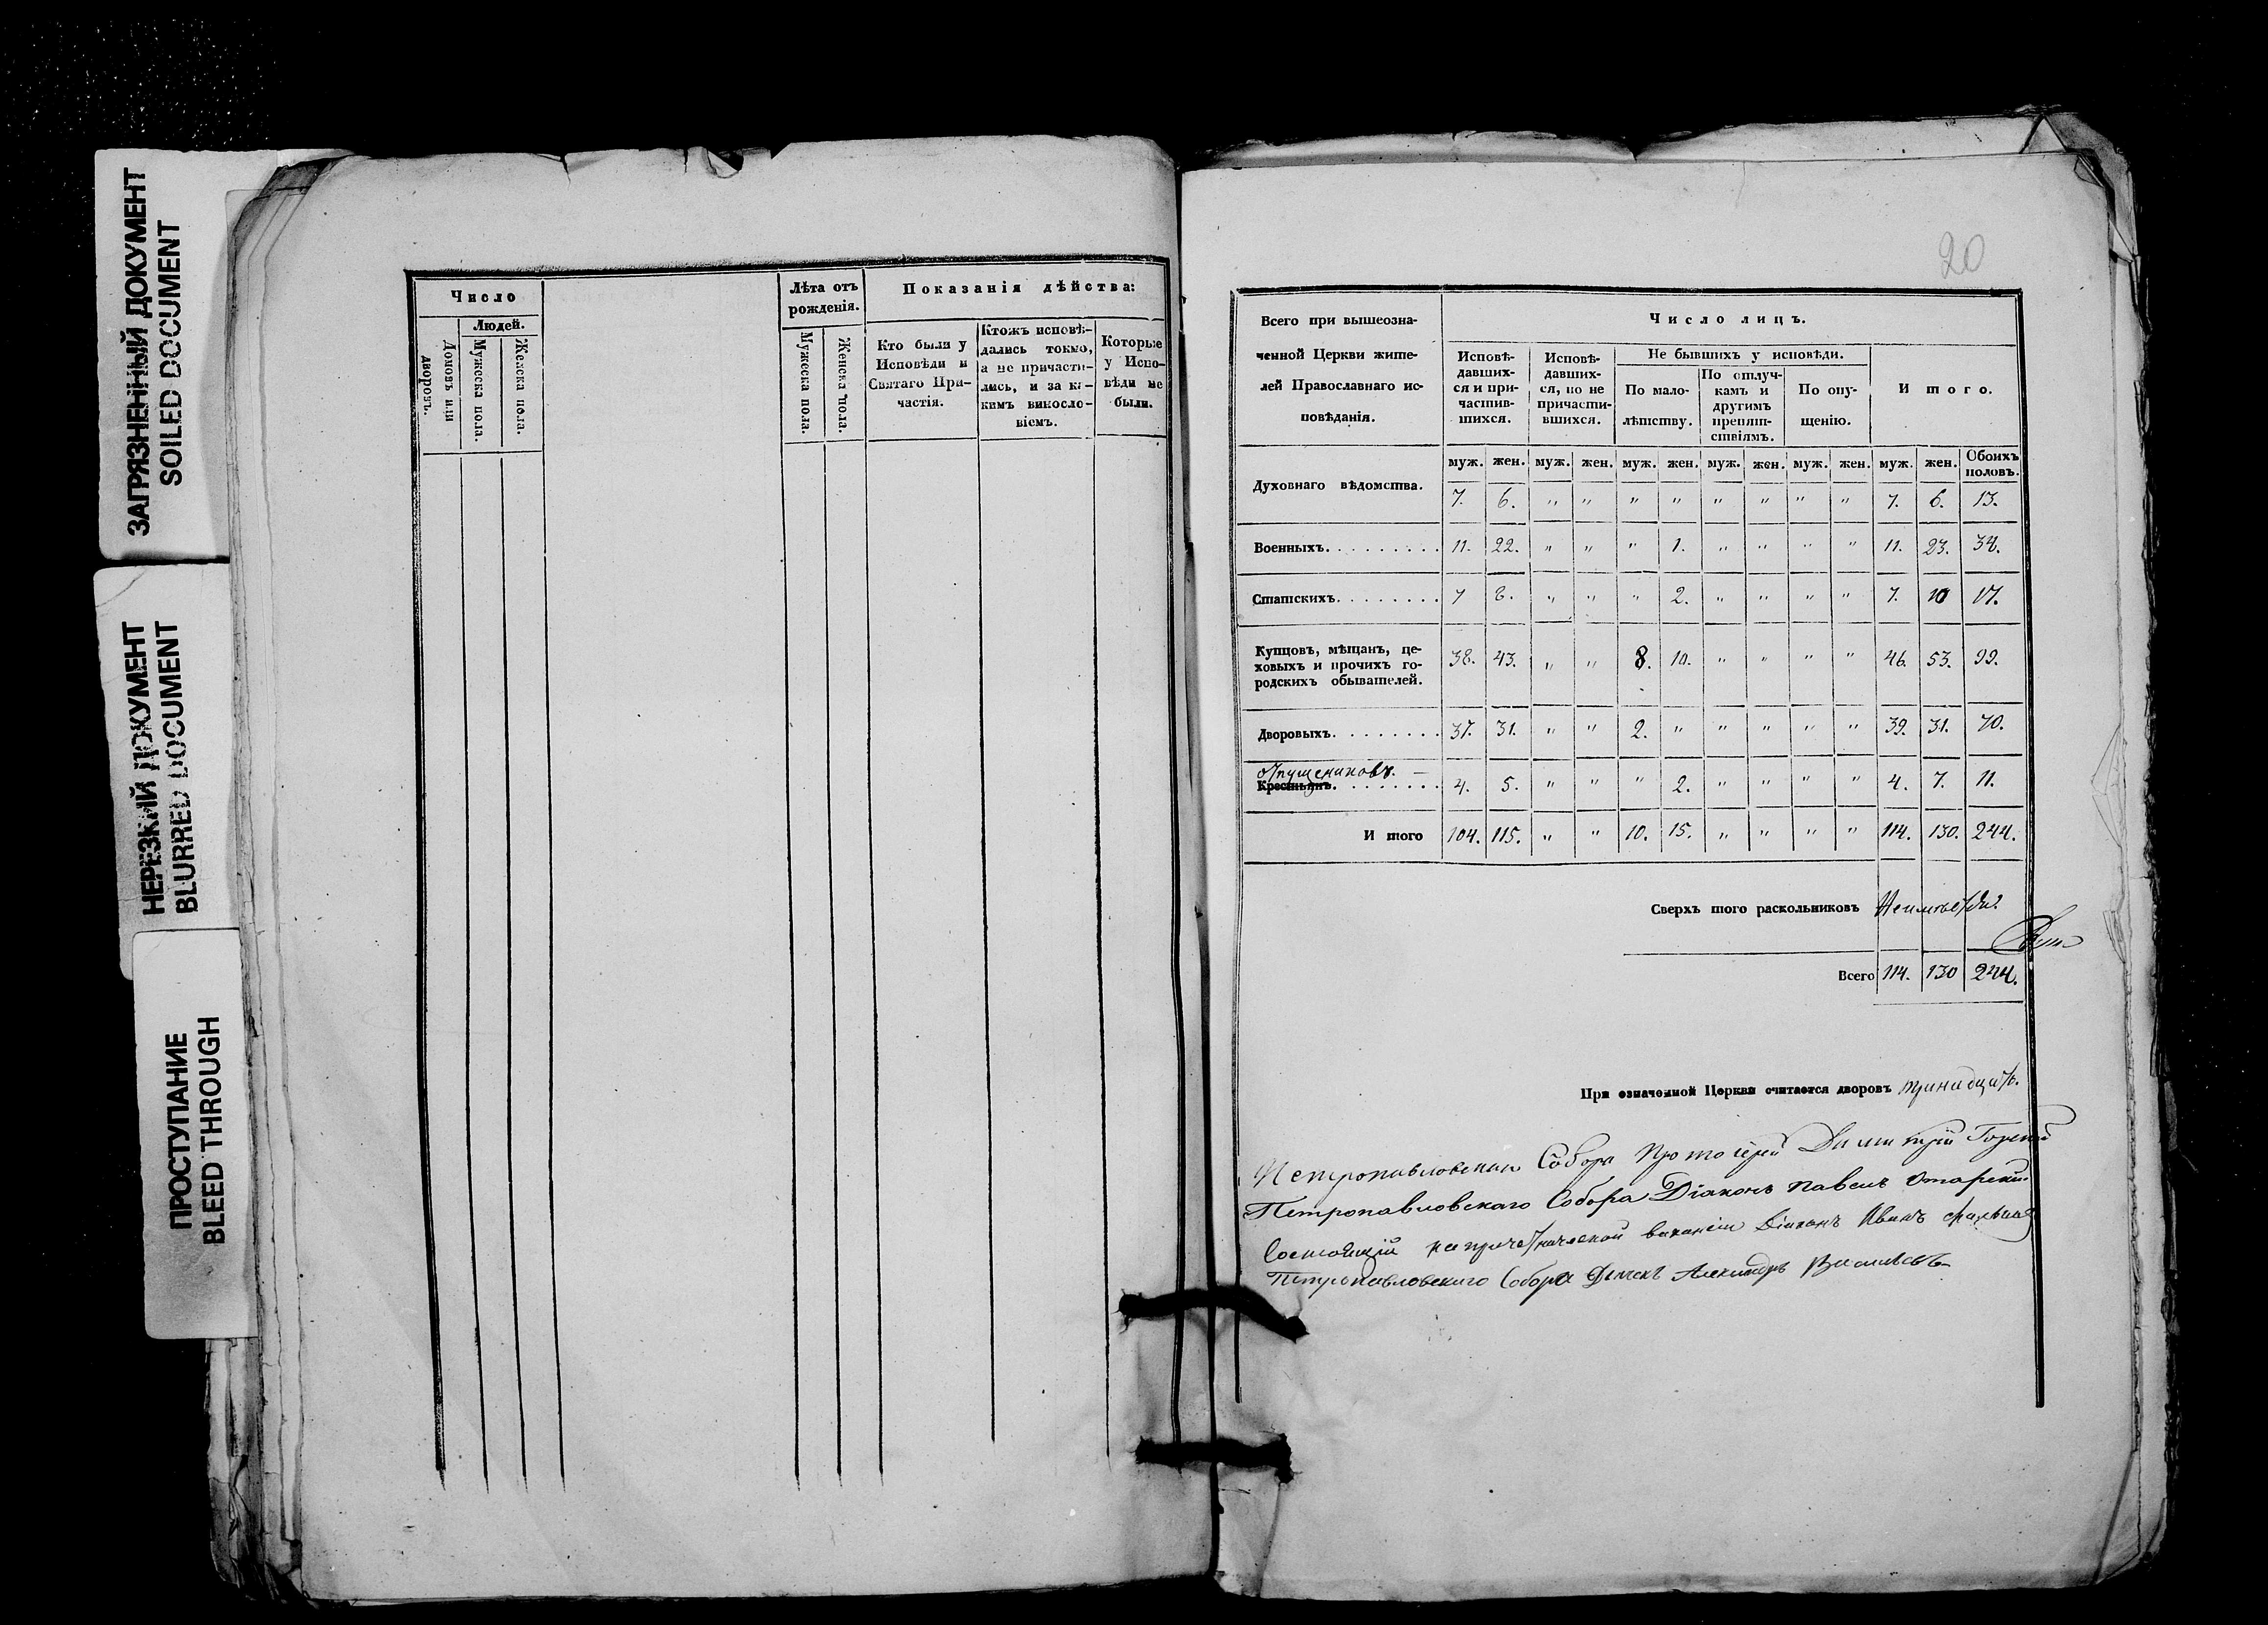 ЗАГРЯЗНЕННЫЙ ДОКУМЕНТ
SOILED DOCUMENT
НЕРЕЗКИЙ ДОКУМЕНТ
BLURRED DOCUMENT
ПРОСТУПАНИЕ
BLEED THROUGH
Число
Людей.
Домовъ или дворовъ.
Мужеска пола.
Женска пола.
Лѣта отъ
рожденія.
Мужеска пола.
Женска пола.
Показанія дѣйства:
Кто были у
Исповѣди и
Святаго При-
частія.
Ктожъ исповѣ-
дались токмо,
а не причасти-
лись, и за ка-
кимъ виносло-
віемъ.
Которые
у Испо-
вѣди не
были.
20
Всего при вышеозна-
ченной Церкви жите-
лей Православнаго ис-
повѣданія.
Число лицъ.
Исповѣ-
давших-
ся и при-
частив-
шихся.
Исповѣ-
давших-
ся, но не
причасти-
вшихся.
Не бывшихъ у исповѣди.
По мало-
лѣтству.
По отлуч-
камъ и
другимъ
препят-
ствіямъ.
По опу-
щенію.
И того.
муж. жен. муж. жен. муж. жен. муж. жен. муж. жен. муж. жен. Обоихъ половъ.
Духовнаго вѣдомства. 7. 6. " " " " " " " " 7. 6. 13.
Военныхъ. . . . . . . . . 11. 22. " " " 1. " " " " 11. 23. 34.
Статскихъ. . . . . . . . 7 8. " " " 2. " " " " 7. 10 17.
Купцовъ, мѣщанъ, це-
ховыхъ и прочихъ го-
родскихъ обывателей. 38. 43. " " 8. 10. " " " " 46. 53. 99.
Дворовыхъ. . . . . . . . 37. 31. " " 2. " " " " " 39. 31. 70.
отпущениковъ. —
Крестьянъ. . . . . . . . 4. 5. " " " 2. " " " " 4. 7. 11.
И того 104. 115. " " 10. 15. " " " " 114. 130. 244.
Сверхъ того раскольниковъ Неимѣется
Всего 114. 130 244.
При означенной Церкви считается дворовъ тринадцать.
Петропавловскаго Собора Протоіерей Димитрій
Петропавловскаго Собора Діаконъ Павелъ
Состоящій на причетнической вакансіи Діаконъ Иванъ
Петропавловскаго Собора Дьячекъ Александръ Васильевъ